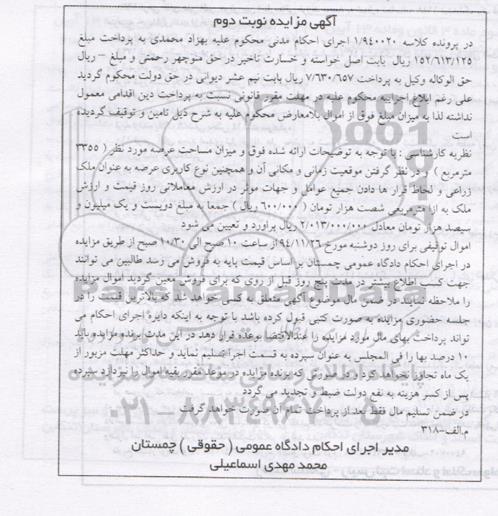 آگهی مزایده نوبت دوم
در پرونده کلاسه ۱/۹۴۰۰۲۰ اجرای احکام مدنی محکوم علیه بهزاد محمدی به پرداخت مبلغ
۱۵۲/۶۱۳/۱۲۵ ریال بابت اصل خواسته و خسارت تاخیر در حق منوچهر رحمتی و مبلغ - ریال
حق الوکاله وکیل به پرداخت ۷/۶۳۰/۶۵۷ ریال بابت نیم عشر دیوانی در حق دولت محکوم گردید
علی رغم ابلاغ اجراییه محکوم علیه در مهلت مقرر قانونی نسبت به پرداخت دین اقدامی معمول
نداشته لذا به میزان مبلغ فوق از اموال بلامعارض محکوم علیه به شرح ذیل تامین و توقیف گردیده
است
نظریه کارشناسی : با توجه به توضیحات ارائه شده فوق و میزان مساحت عرصه مورد نظر ( ۳۳۵۵
مترمربع ) و در نظر گرفتن موقعیت زمانی و مکانی آن و همچنین نوع کاربری عرصه به عنوان ملک
زراعی و لحاظ قرار ها دادن جمیع عوامل و جهات موثر در ارزش معاملاتی روز قیمت و ارزش
ملک به ازا مترمربعی شصت هزار تومان ( ۶۰۰/۰۰۰ ریال ) جمعا به مبلغ دویست و یک میلیون و
سیصد هزار تومان معادل ۲/۰۱۳/۰۰۰/۰۰۰ ریال برآورد و تعیین می شود
اموال توقیفی برای روز دوشنبه مورخ ۹۴/۱۱/۲۶ از ساعت ۱۰ صبح الی ۱۰/۳۰ صبح از طریق مزایده
در اجرای احکام دادگاه عمومی چمستان بر اساس قیمت پایه به فروش می رسد طالبین می توانند
جهت کسب اطلاع بیشتر در مدت پنج روز قبل از روی که برای فروش معین گردید اموال مزایده
را ملاحظه نمایند در ضمن مال موضوع آگهی متعلق به کسی خواهد شد که بالاترین قیمت را در
جلسه حضوری مزایده به صورت کتبی قبول کرده باشد با توجه به اینکه دایره اجرای احکام می
تواند پرداخت بهای مال مورد مزایده را عندالاقتضا بوعده قرار دهد در این مدت برنده مزایده باید
۱۰ درصد بها را فی المجلس به عنوان سپرده به قسمت اجرا تسلیم نماید و حداکثر مهلت مزبور از
یک ماه تجاوز نخواهد کرد و در صورتی که برنده مزایده در موعد مقرر بقیه اموال را نپردازد سپرده
پس از کسر هزینه به نفع دولت ضبط و تجدید می گردد
در ضمن تسلیم مال فقط بعد از پرداخت تمام آن صورت خواهد گرفت
م.الف-۳۱۸
مدیر اجرای احکام دادگاه عمومی ( حقوقی ) چمستان
محمد مهدی اسماعیلی
۰۲۱-۸۸۳۴۹۶۷۰